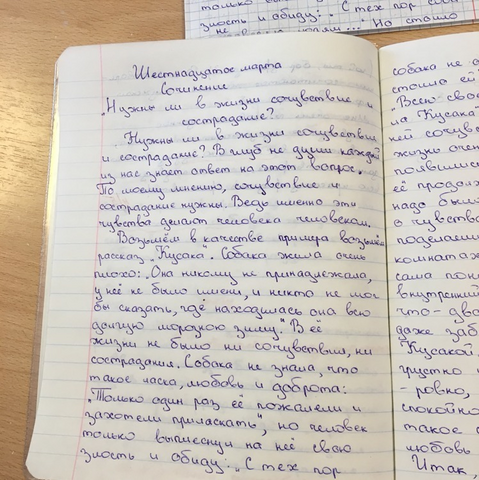 злость и обиду: „С тех пор
Шестнадцатое марта
сочинение
„Нужны ли в жизни сочувствие и
сострадание?
Нужны ли в жизни сочувствие
и сострадание? В глуб не души каждый
из нас знает ответ на этот вопрос.
По моему мнению, сочувствие и
сострадание нужны. Ведь именно эти
чувства делают человека человеком.
Возьмём в качестве примера возьмём
рассказ „Кусака. Собака жила очень
плохо: „Она никому не принадлежала,
у неё не было имени, и никто не мог
бы сказать, где находилась она всю
долгую морозную зиму." В её
жизни не было ни сочувствия, ни
сострадания. Собака не знала, что
такое ласка, любовь и доброта:
„Только один раз её пожалели и
захотели приласкать", но человек
только выплеснул на неё свою
злость и обиду: „С тех пор
собака не
стоила ей
"Всею сво
ла Кусака
ней сочув
жизни очен
появились
её продол
надо было
о чувства
поделаи
комнатах
сама пон
внутренний
что-два
даже заб
Кусакой.
грустно и
- ровно,
спокойно
такое
любовь
Итак,